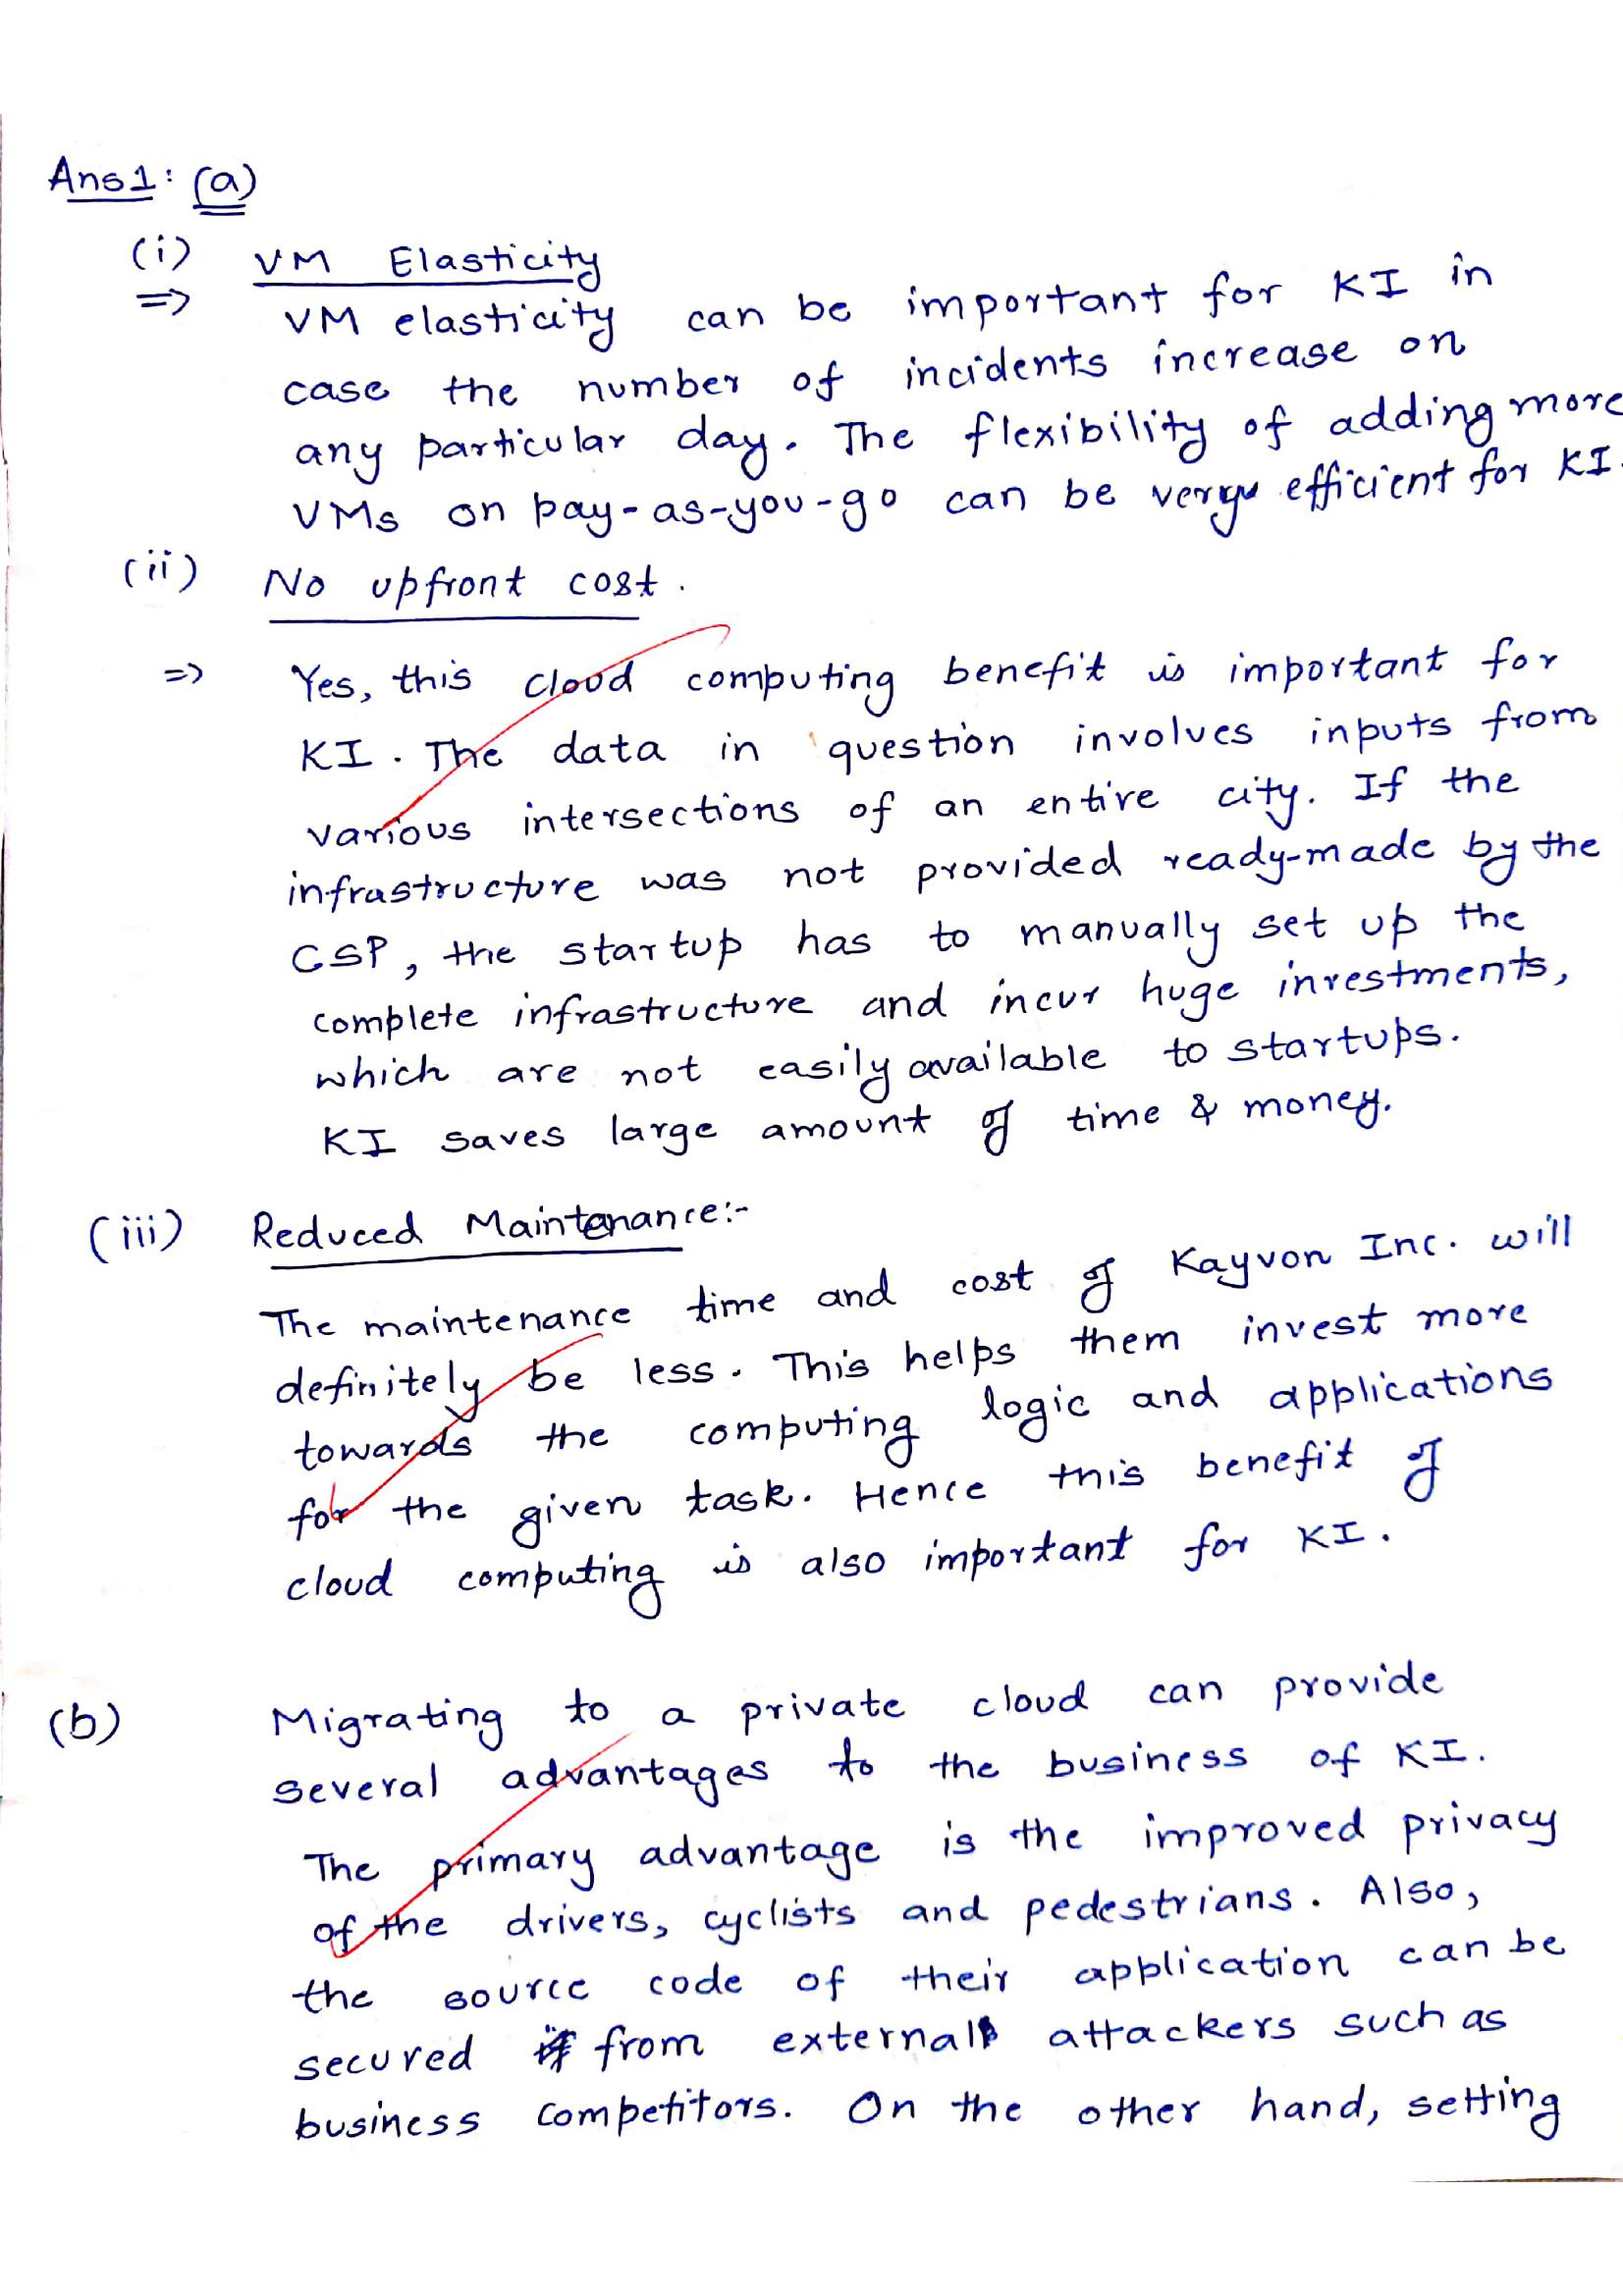 Ans1: (a)
(i) VM Elasticity
=> VM elasticity can be important for KI in
case the number of incidents increase on
any particular day. The flexibility of adding more
VMs on pay-as-you-go can be very efficient for KI.
(ii) No upfront cost.
=> Yes, this cloud computing benefit is important for
KI. The data in question involves inputs from
various intersections of an entire city. If the
infrastructure was not provided ready-made by the
CSP, the startup has to manually set up the
complete infrastructure and incur huge investments,
which are not easily available to startups.
KI saves large amount of time & money.
(iii) Reduced Maintanance:-
The maintenance time and cost of Kayvon Inc. will
definitely be less. This helps them invest more
towards the computing logic and applications
for the given task. Hence this benefit of
cloud computing is also important for KI.
(b) Migrating to a private cloud can provide
several advantages to the business of KI.
The primary advantage is the improved privacy
of the drivers, cyclists and pedestrians. Also,
the source code of their application can be
secured from external attackers such as
business competitors. On the other hand, setting